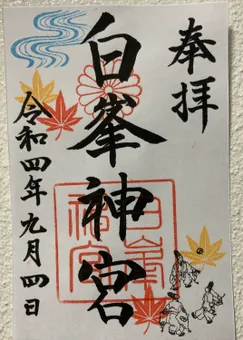 奉拝
白峯神宮
令和四年九月四日
白峯
神宮